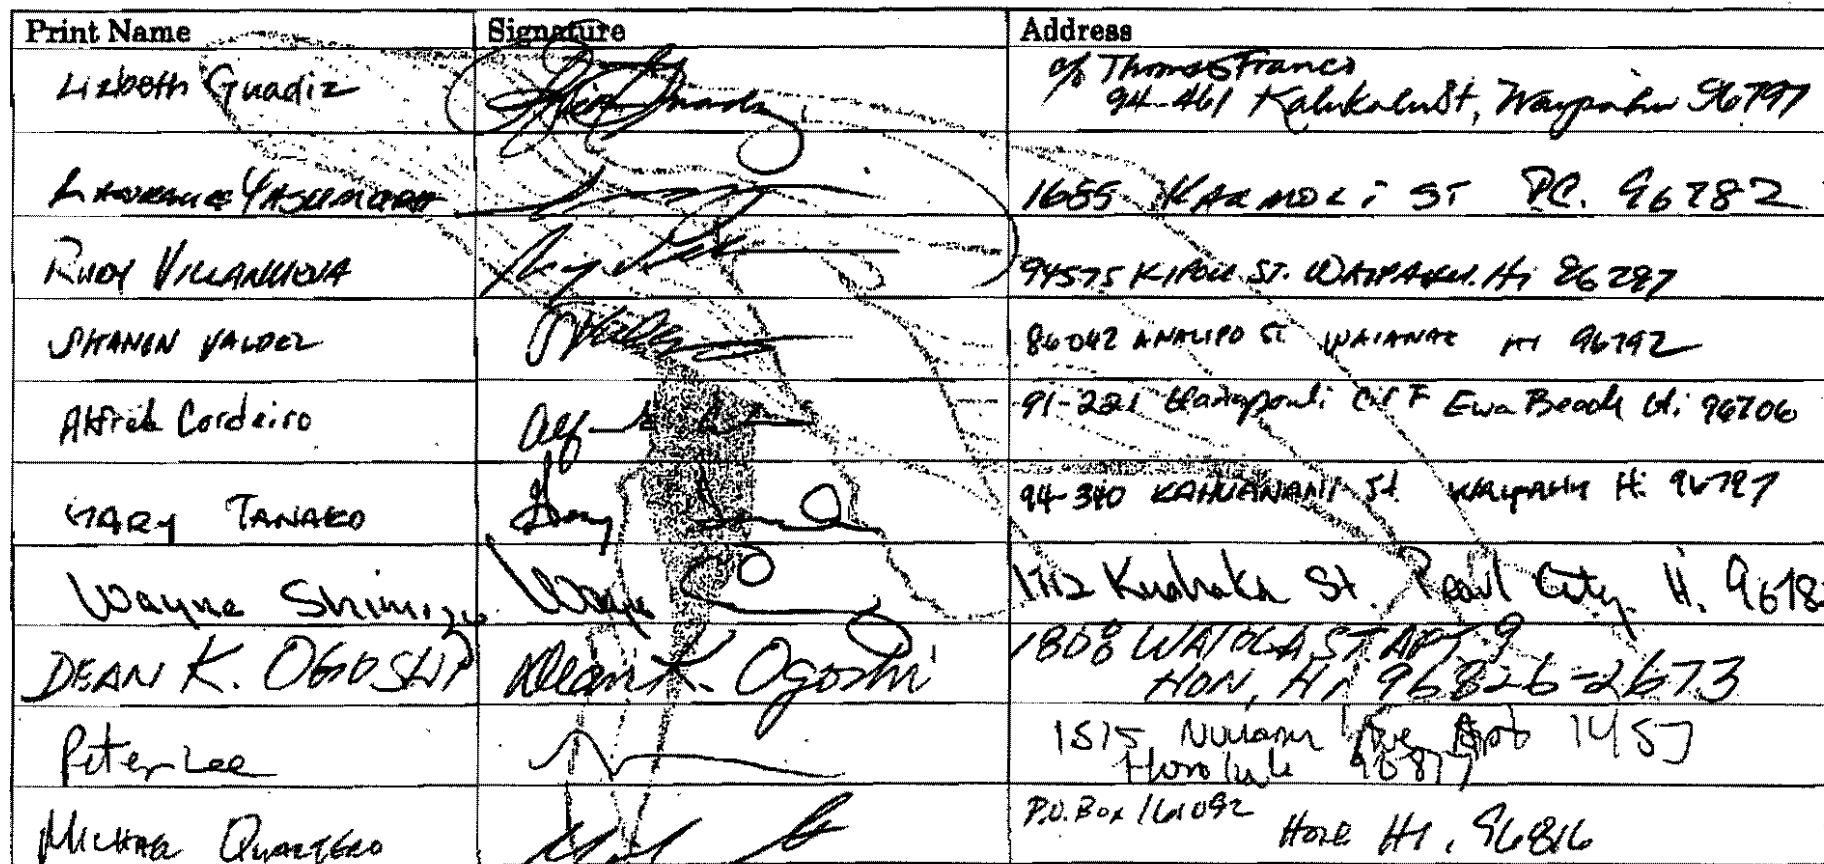 Print Name Signature Address
Lizbeth Guadiz c/o Thomas Franco
94-461 Kalukalu St, Waypahu 96797
Laurance Yasumoto 1655 St P.C. 96782
Rudy Villanueva 94575 Kipou St. Waipahu. Hi 86797
Shanen Valdez 86042 Analipo St Waianae Hi 96792
Alfred Cordeiro 91-221 Cir F Ewa Beach Hi 96706
Gary Tanako 94-340 Kahuanani St. Waipahu Hi 96797
Wayne Shimizu Wayne 1712 Kuahaka St. Pearl City. Hi. 9678
DEAN K. OGOSHI Dean K. Ogoshi 1808 WATOLA ST. APT 9
HON, Hi 96826-2673
Peter Lee 1515 Nuuanu Ave Apt 1457
Honolulu 96817
Michael Quartero P.O. Box 161092
Hono HI. 96816